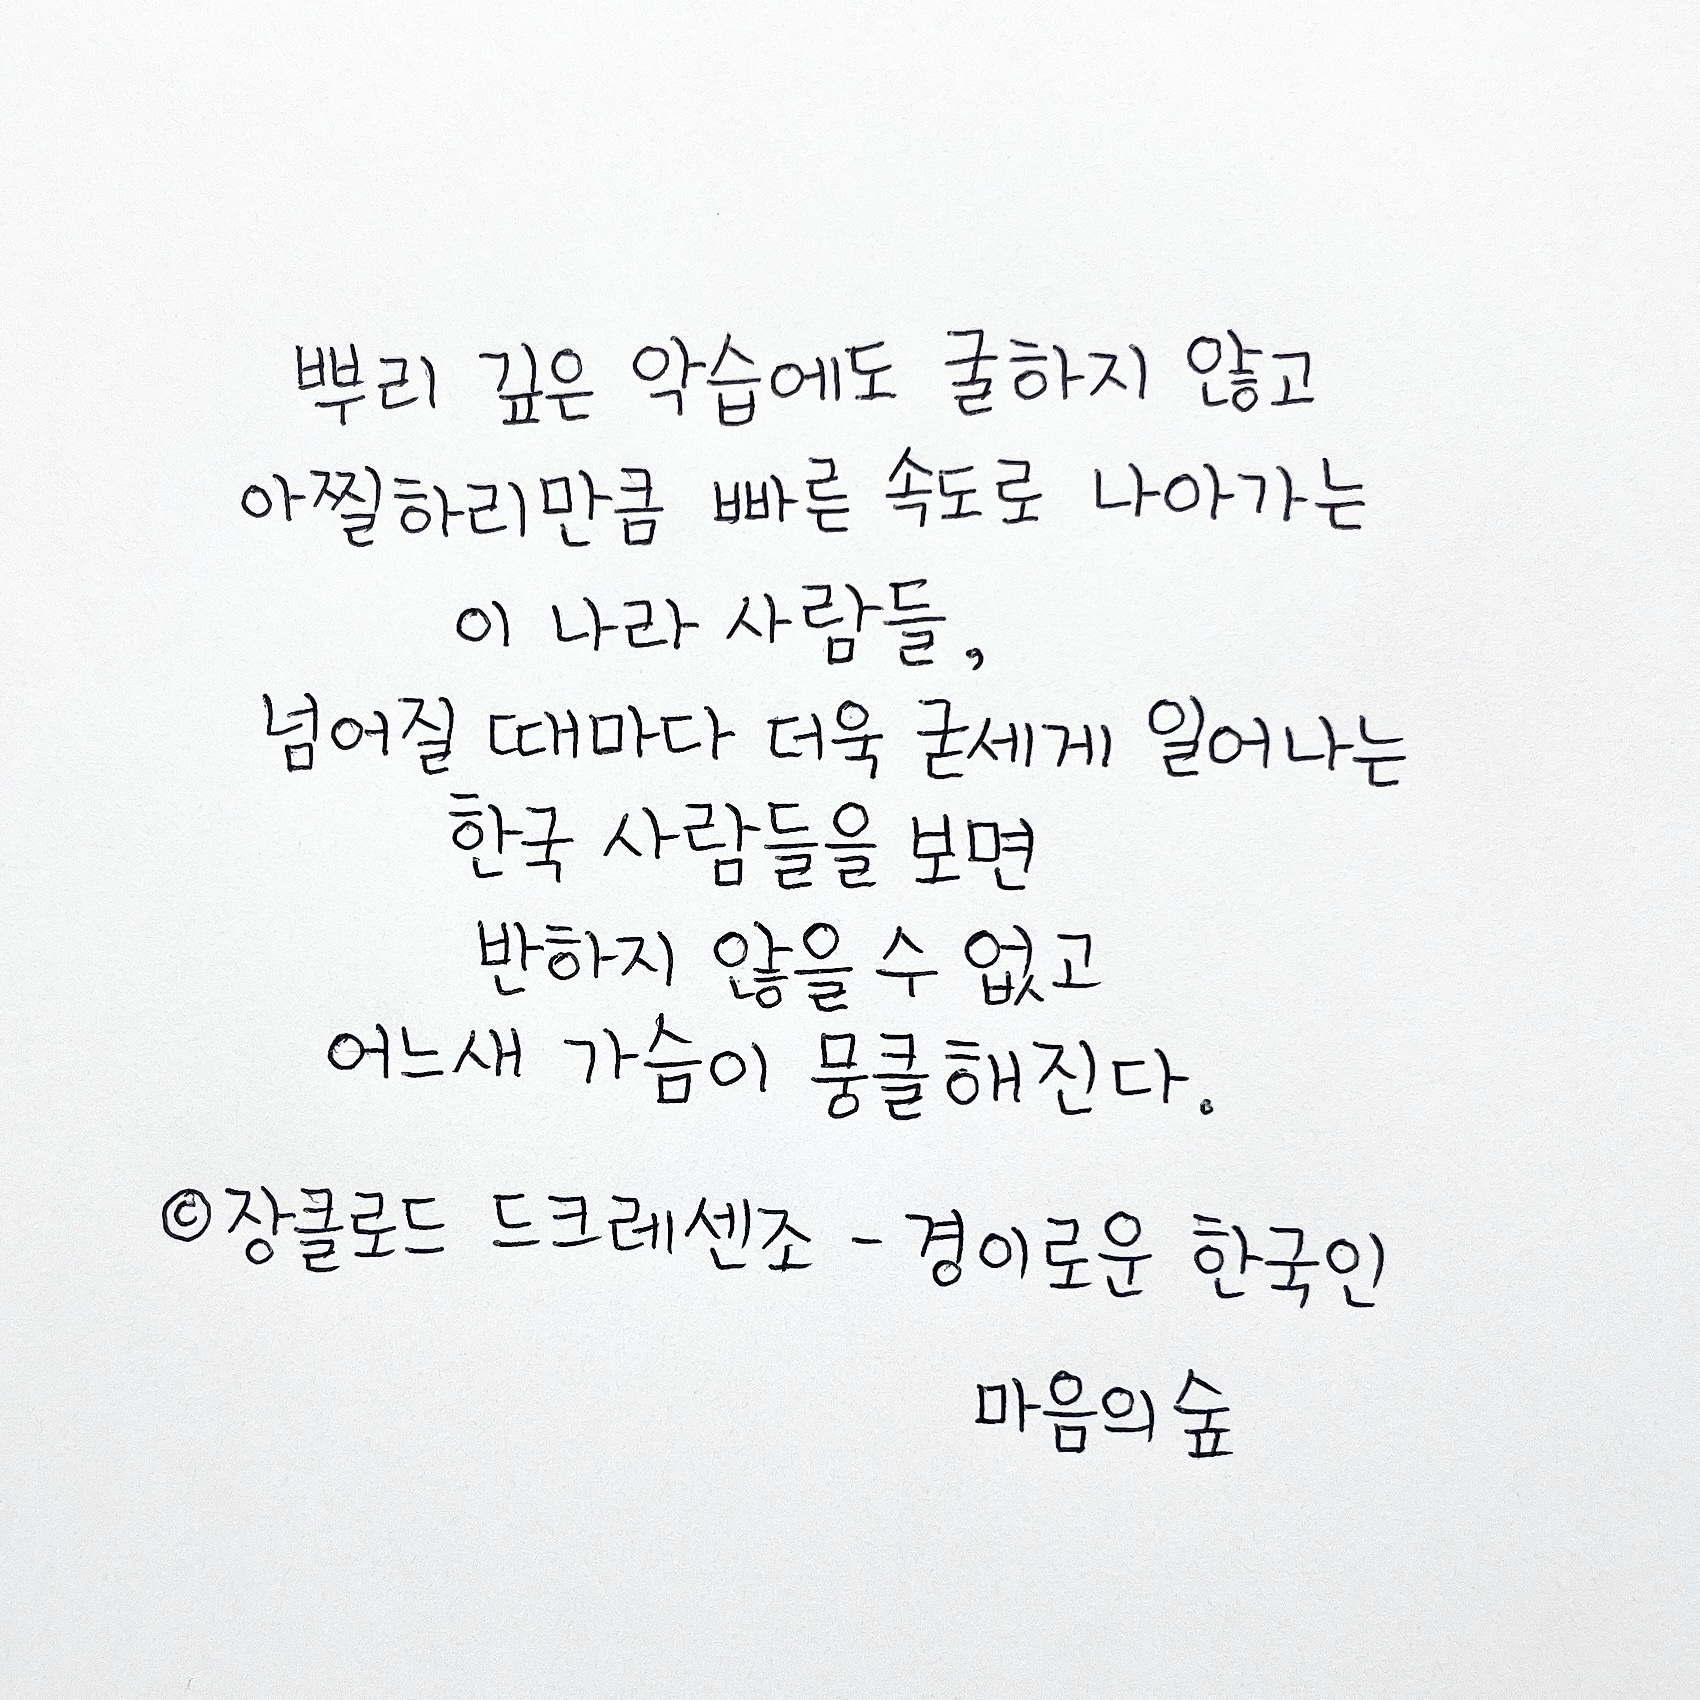 뿌리 깊은 악습에도 굴하지 않고
아찔하리만큼 빠른 속도로 나아가는
이 나라 사람들,
넘어질 때마다 더욱 굳세게 일어나는
한국 사람들을 보면
반하지 않을 수 없고
어느새 가슴이 뭉클해진다.
©장클로드 드크레센조 - 경이로운 한국인
마음의숲